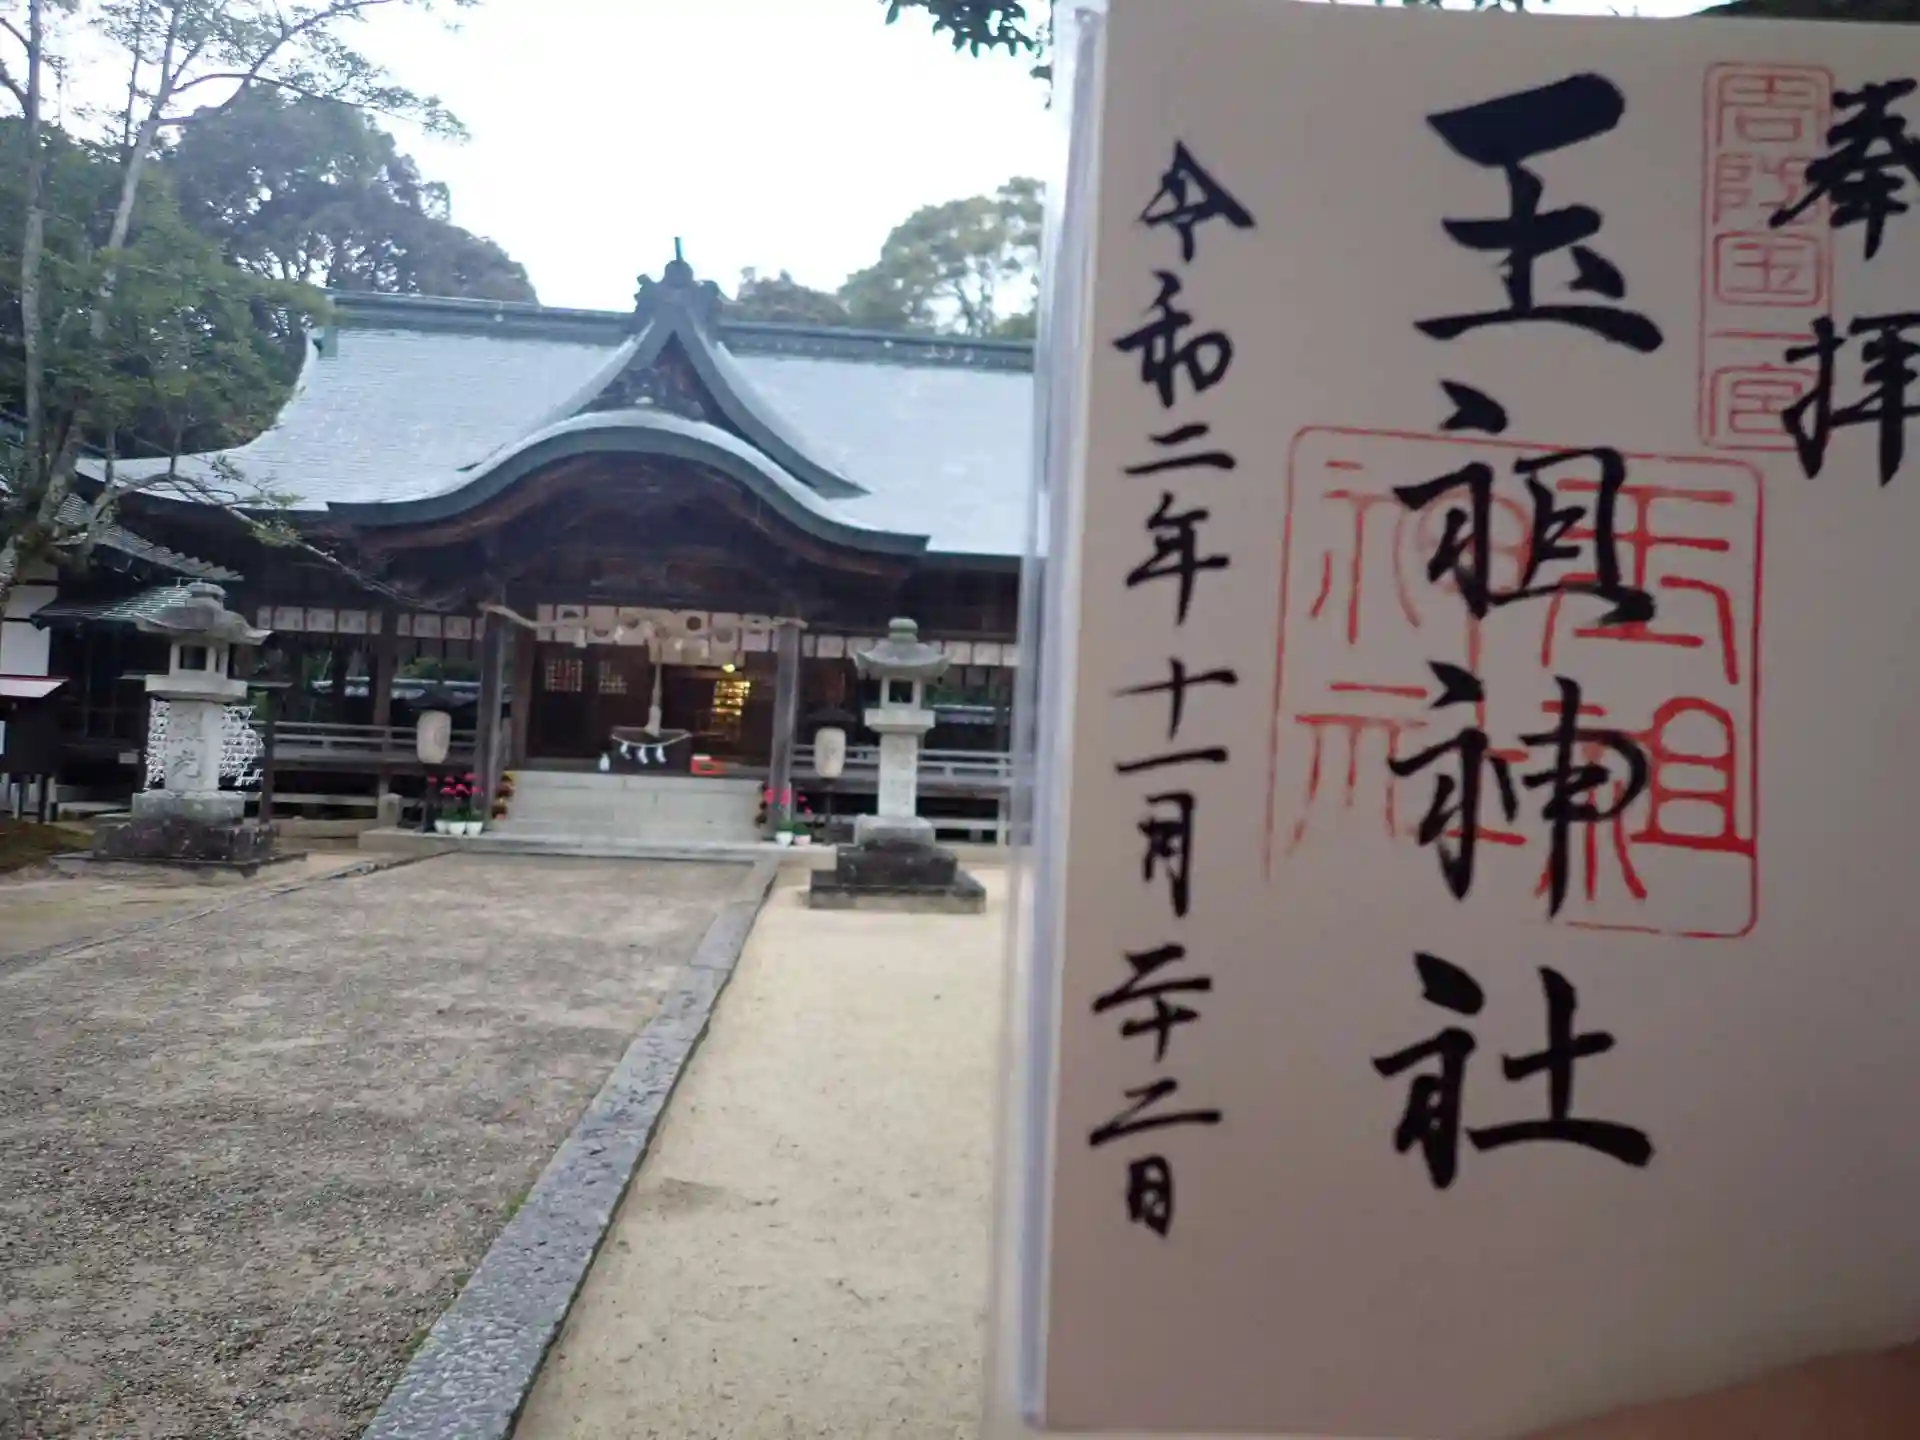 奉拝
周防国一宮
玉祖神社
玉祖神社
令和二年十一月二十二日